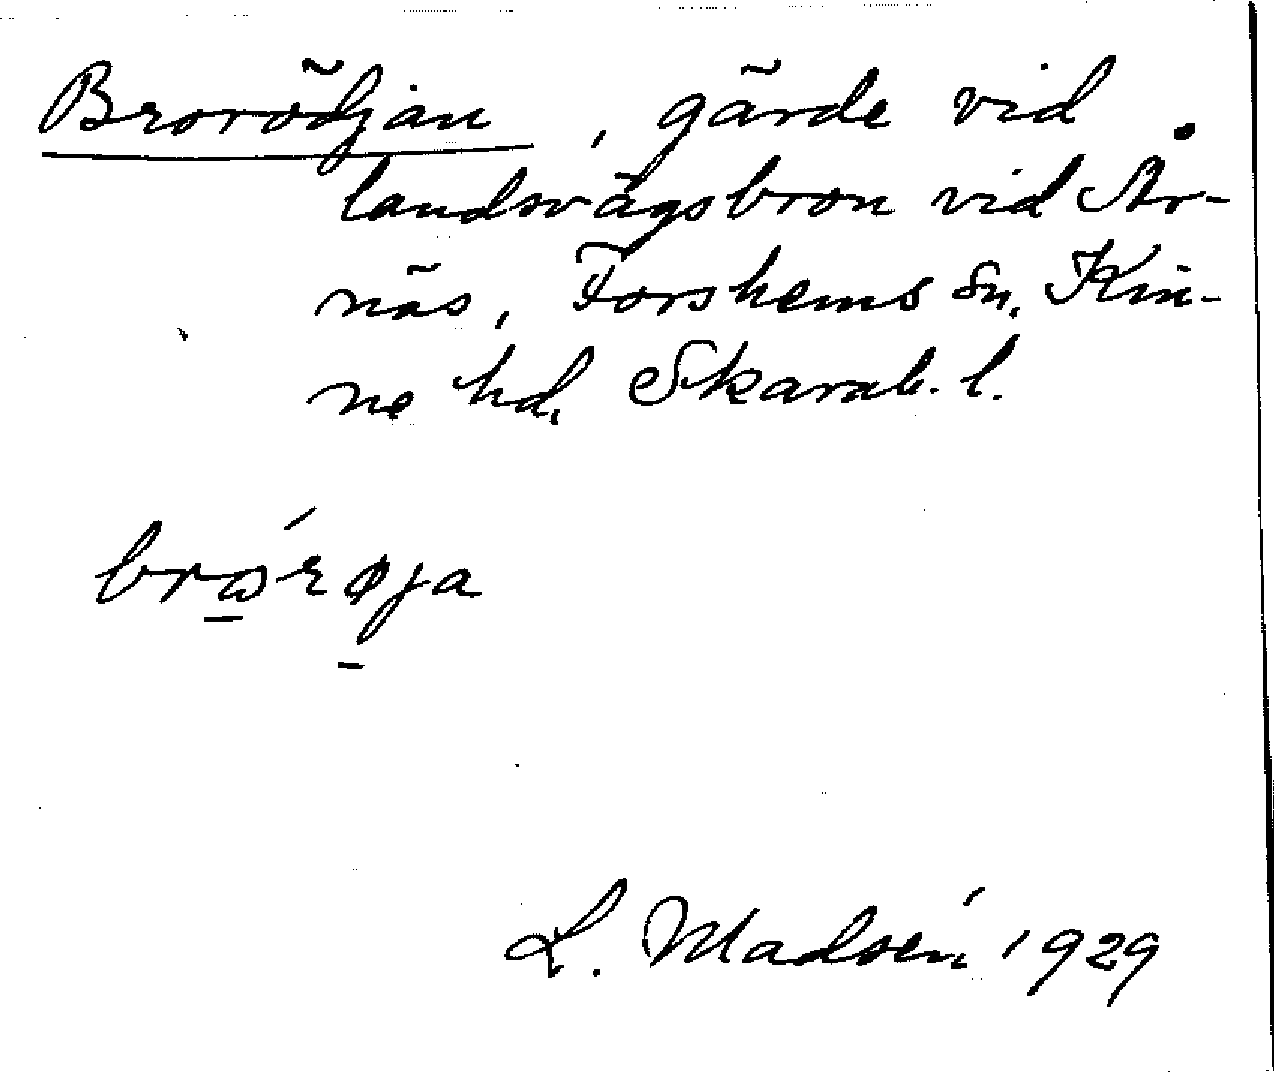 Brorödjan, gärde vid
landsvägsbron vid År-
näs, Forshems sn, Kin-
ne hd, Skarab. l.
L. Madsén 1929